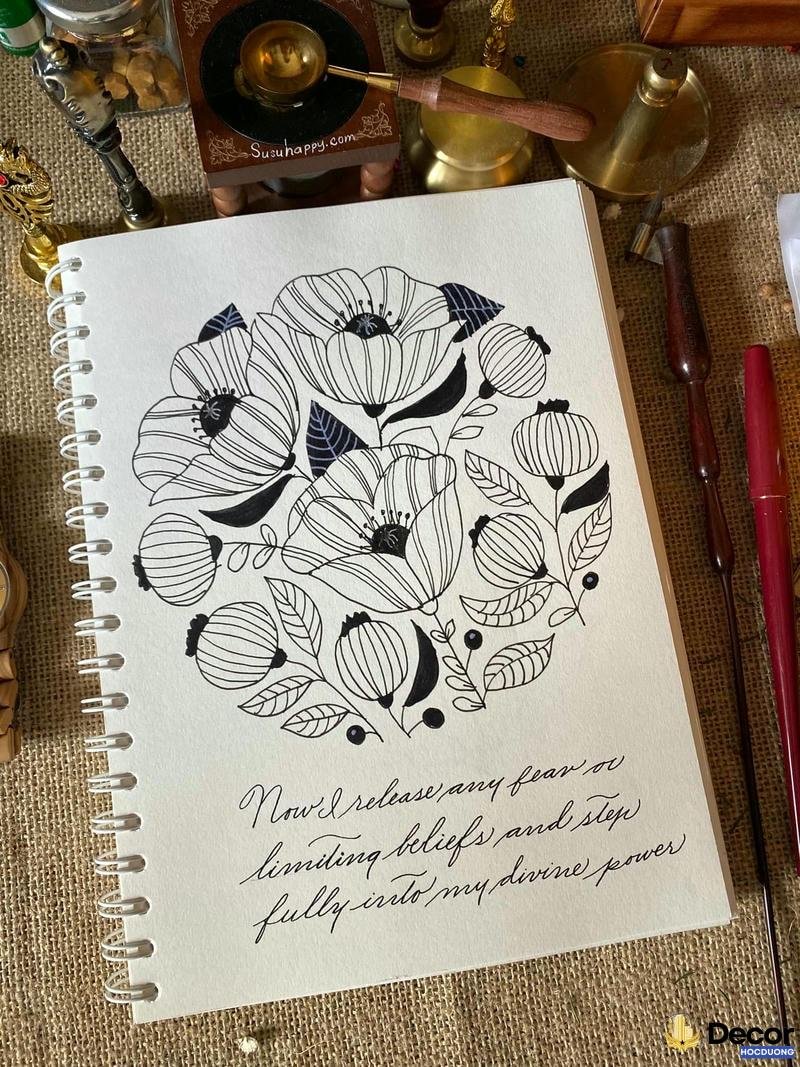 Susuhappy.com
Now I release any fear or
limiting beliefs and step
fully into my divine power
Decor
HOCDUONG